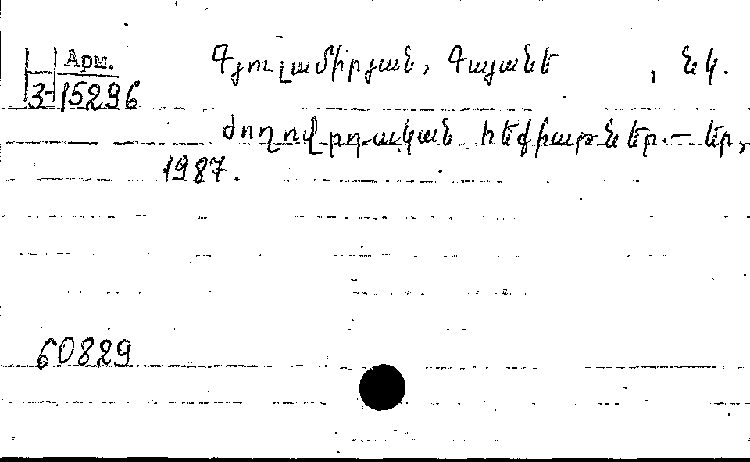 Арм. Գյուլամիրյան, Գայանե , նկ.
3-15296
Ժողովրդական հեքիաթներ.— Եր,
1987.
60829